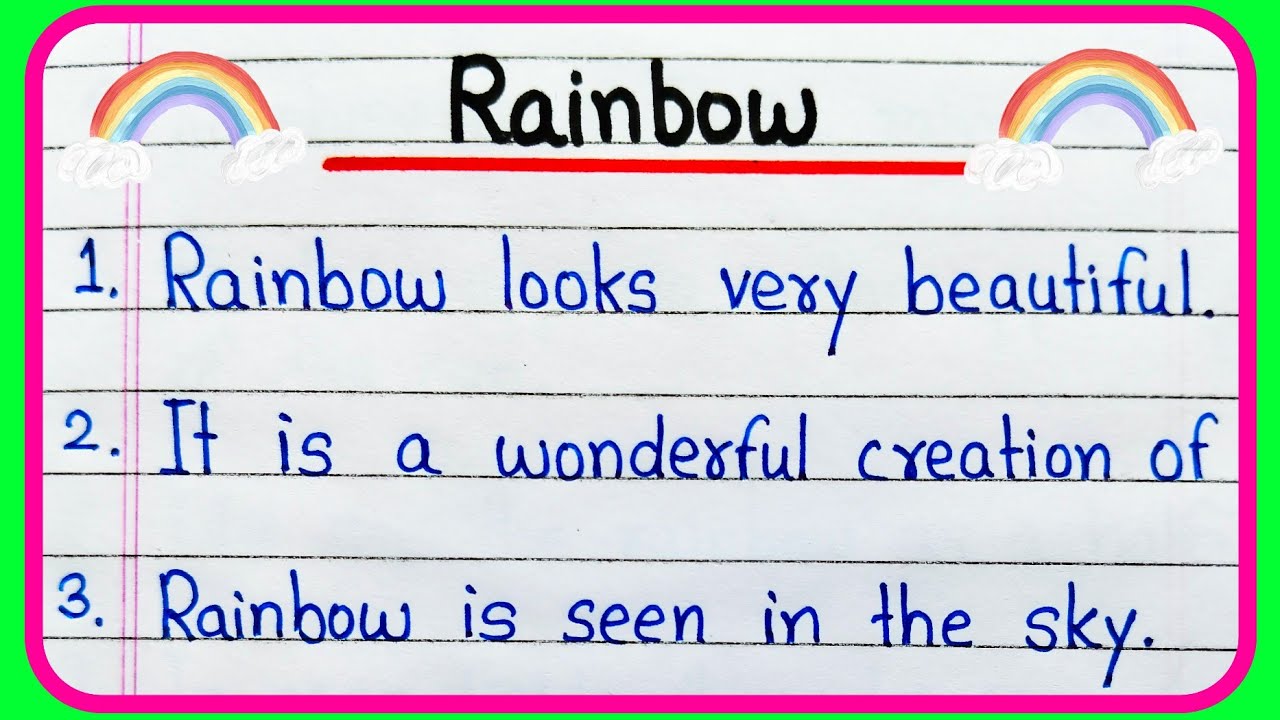 Rainbow
1. Rainbow looks very beautiful.
2. It is a wonderful creation of
3. Rainbow is seen in the sky.